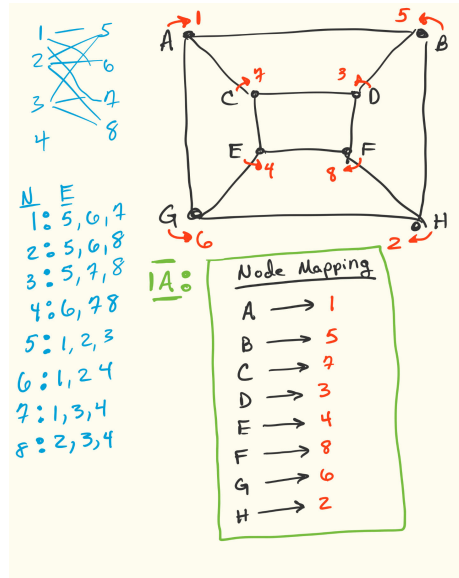 1 5
2 6
3 7
4 8
N E
1: 5, 6, 7
2: 5, 6, 8
3: 5, 7, 8
4: 6, 7 8
5: 1, 2, 3
6: 1, 2 4
7: 1, 3, 4
8: 2, 3, 4
A 1
5 B
C 7
3 D
E 4
8 F
G 6
2 H
1A:
Node Mapping
A → 1
B → 5
C → 7
D → 3
E → 4
F → 8
G → 6
H → 2